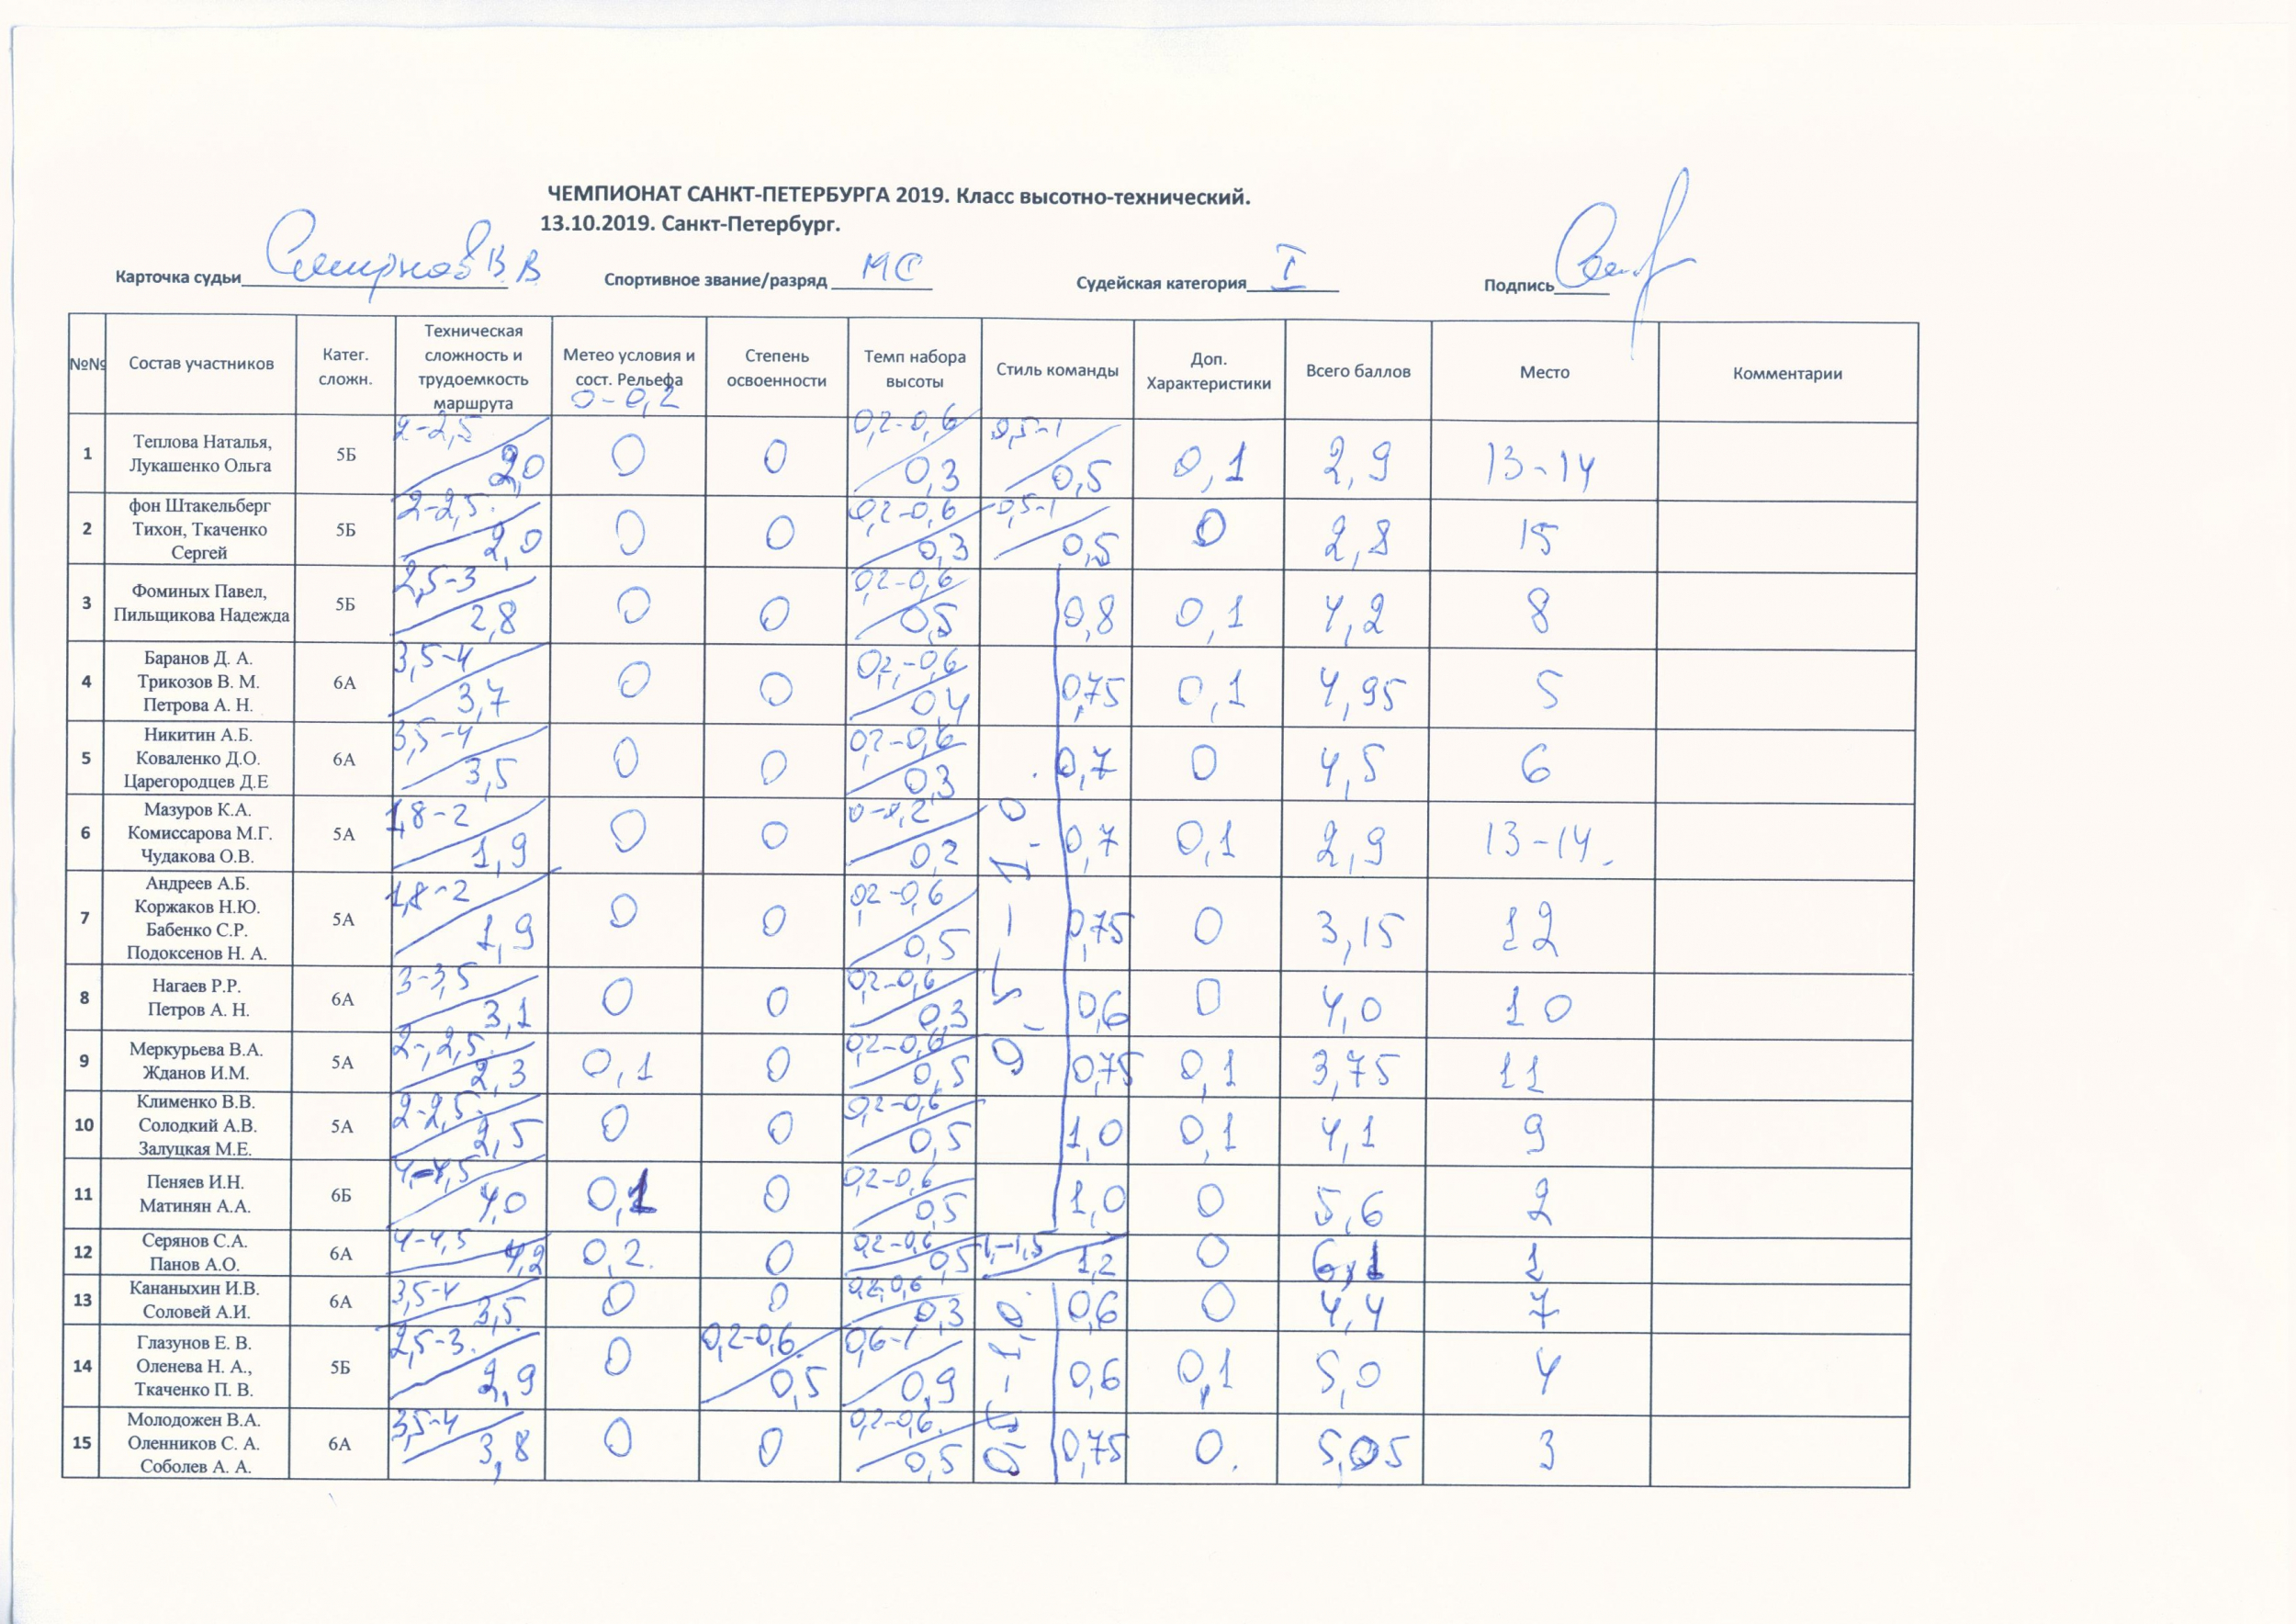 ЧЕМПИОНАТ САНКТ-ПЕТЕРБУРГА 2019. Класс высотно-технический.
13.10.2019. Санкт-Петербург.
Карточка судьи Смирнов В.В Спортивное звание/разряд МС Судейская категория I Подпись
№№ Состав участников Катег. сложн. Техническая сложность и трудоемкость маршрута Метео условия и сост. Рельефа 0-0,2 Степень освоенности Темп набора высоты Стиль команды Доп. Характеристики Всего баллов Место Комментарии
1 Теплова Наталья, Лукашенко Ольга 5Б 2-2,5 2,0 0 0 0,2-0,6 0,3 0,5-1 0,5 0,1 2,9 13-14
2 фон Штакельберг Тихон, Ткаченко Сергей 5Б 2-2,5 2,0 0 0 0,2-0,6 0,3 0,5-1 0,5 0 2,8 15
3 Фоминых Павел, Пильщикова Надежда 5Б 2,5-3 2,8 0 0 0,2-0,6 0,5 0,8 0,1 4,2 8
4 Баранов Д. А. Трикозов В. М. Петрова А. Н. 6А 3,5-4 3,7 0 0 0,2-0,6 0,4 0,75 0,1 4,95 5
5 Никитин А.Б. Коваленко Д.О. Царегородцев Д.Е 6А 3,5-4 3,5 0 0 0,2-0,6 0,3 0,7 0 4,5 6
6 Мазуров К.А. Комиссарова М.Г. Чудакова О.В. 5А 1,8-2 1,9 0 0 0-0,2 0,2 0,7 0,1 2,9 13-14.
7 Андреев А.Б. Коржаков Н.Ю. Бабенко С.Р. Подоксенов Н. А. 5А 1,8-2 1,9 0 0 0,2-0,6 0,5 0,75 0 3,15 12
8 Нагаев Р.Р. Петров А. Н. 6А 3-3,5 3,1 0 0 0,2-0,6 0,3 0,6 0 4,0 10
9 Меркурьева В.А. Жданов И.М. 5А 2-2,5 2,3 0,1 0 0,2-0,6 0,5 0,75 0,1 3,75 11
10 Клименко В.В. Солодкий А.В. Залуцкая М.Е. 5А 2-2,5 2,5 0 0 0,2-0,6 0,5 1,0 0,1 4,1 9
11 Пеняев И.Н. Матинян А.А. 6Б 4-4,5 4,0 0,1 0 0,2-0,6 0,5 1,0 0 5,6 2
12 Серянов С.А. Панов А.О. 6А 4-4,5 4,2 0,2. 0 0,2-0,6 0,5 1,-1,5 1,2 0 6,1 1
13 Кананыхин И.В. Соловей А.И. 6А 3,5-4 3,5 0 0 0,2-0,6 0,3 0,6 0 4,4 7
14 Глазунов Е. В. Оленева Н. А., Ткаченко П. В. 5Б 2,5-3. 2,9 0 0,2-0,6. 0,5 0,6-1 0,9 0,6 0,1 5,0 4
15 Молодожен В.А. Оленников С. А. Соболев А. А. 6А 3,5-4 3,8 0 0 0,2-0,6. 0,5 0,75 0. 5,05 3